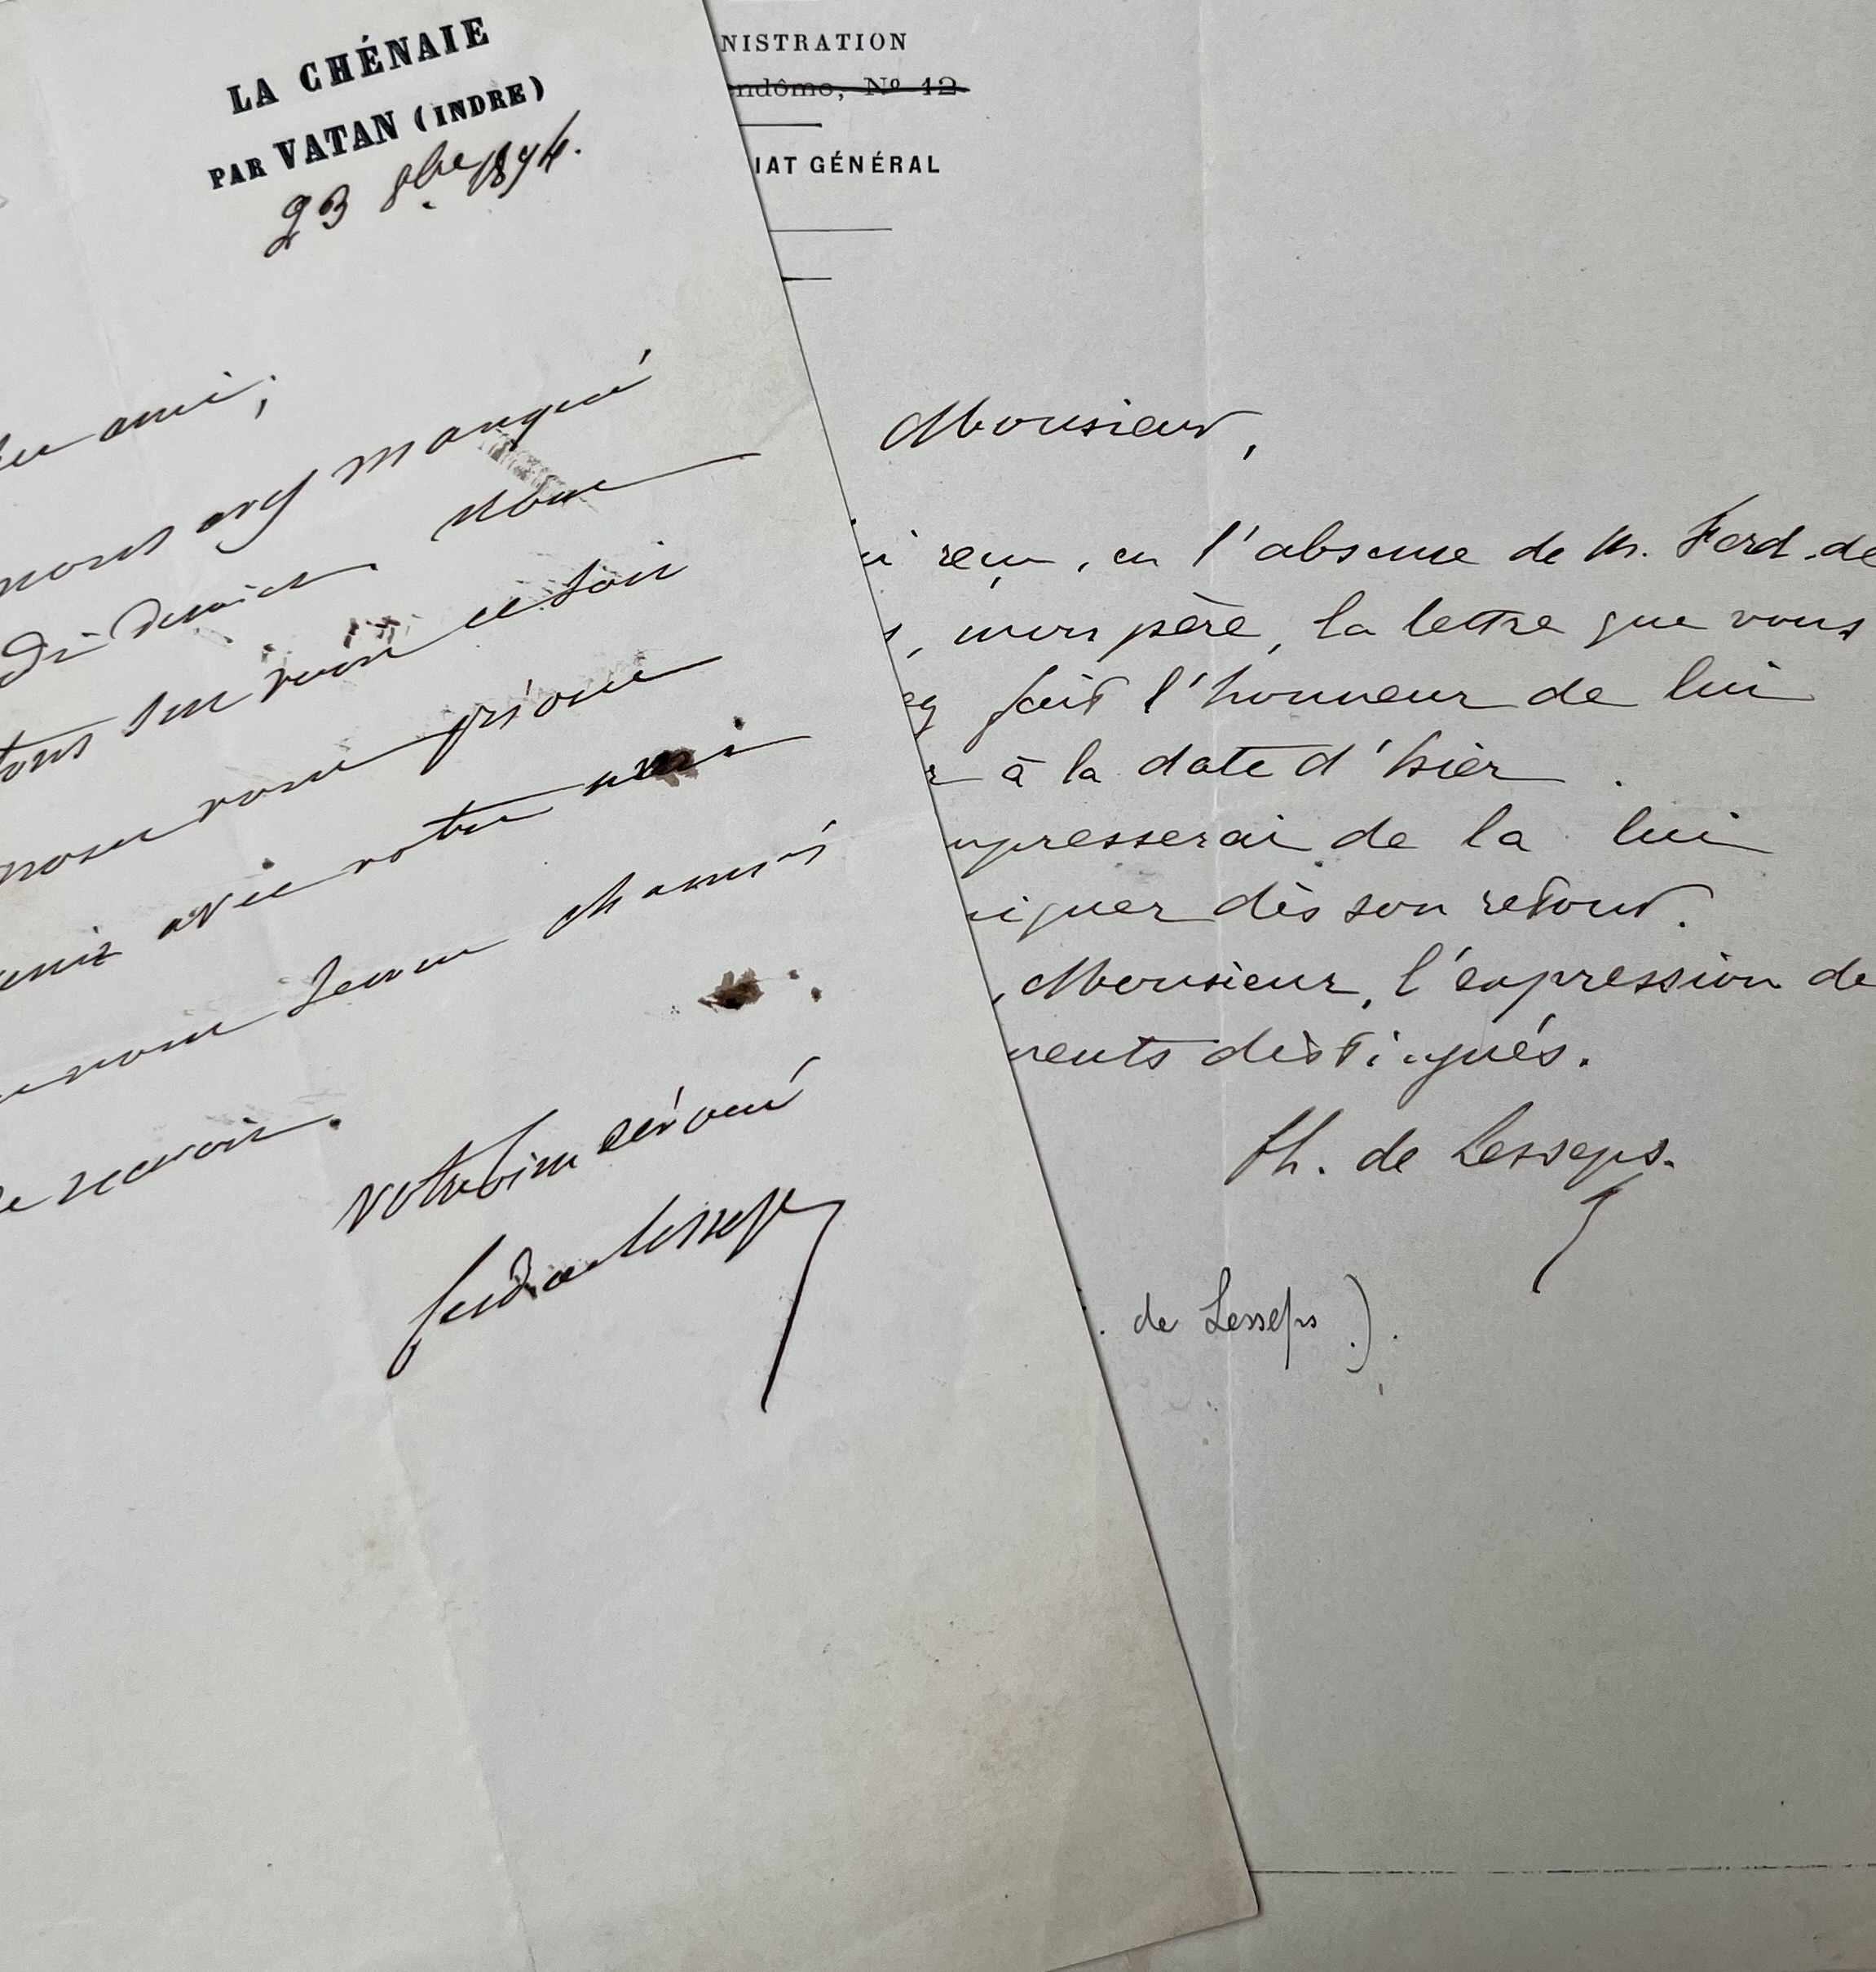 LA CHÉNAIE
PAR VATAN (INDRE)
23 8bre 1874.
ami,
nous avez manqué
di dernier. nous
sur vous ce soir
nous vous prions
venir avec votre
nous serons charmés
recevoir.
votre bien dévoué
ferd de Lesseps
NISTRATION
ndôme, No 12.
IAT GÉNÉRAL
Monsieur,
i reçu, en l'absence de M. Ferd. de
s, mon père, la lettre que vous
ez fait l'honneur de lui
r à la date d'hier.
mpresserai de la lui
niquer dès son retour.
, Monsieur, l'expression de
ments distingués.
Ch. de Lesseps.
. de Lesseps ).